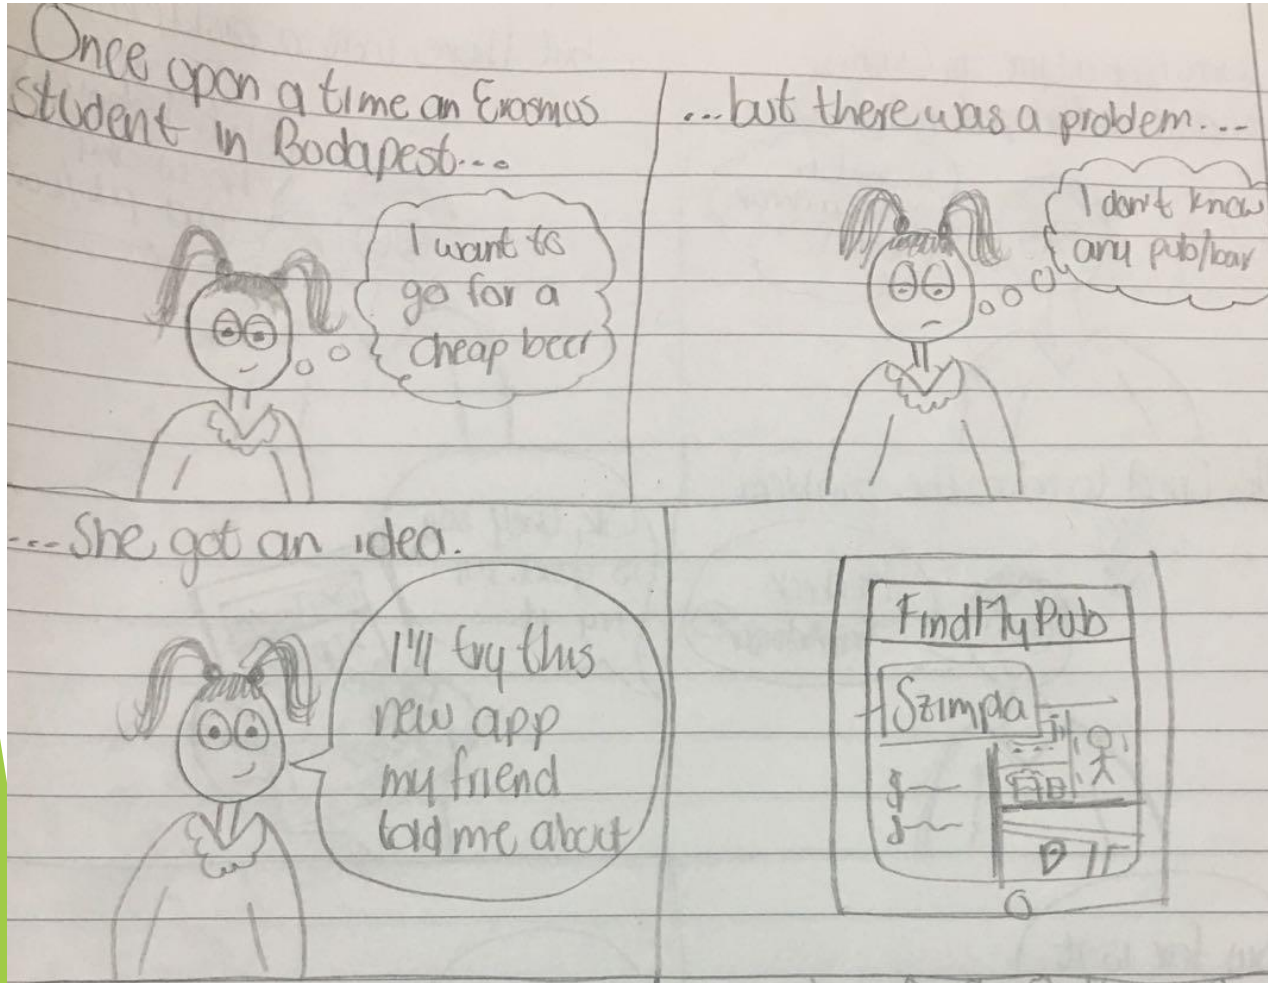 Once upon a time an Erasmus
student in Bodapest...
I want to
go for a
cheap beer
...but there was a problem...
I don't know
any pub/bar
...She got an idea.
I'll try this
new app
my friend
told me about
FindMyPub
Szimpla